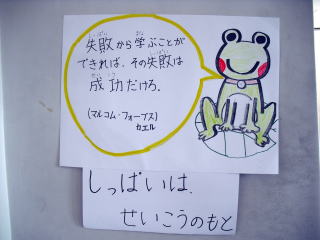 失敗から学ぶことが
できれば、その失敗は
成功だけろ.
(マルコム・フォーブス)
カエル
しっぱいは、
せいこうのもと